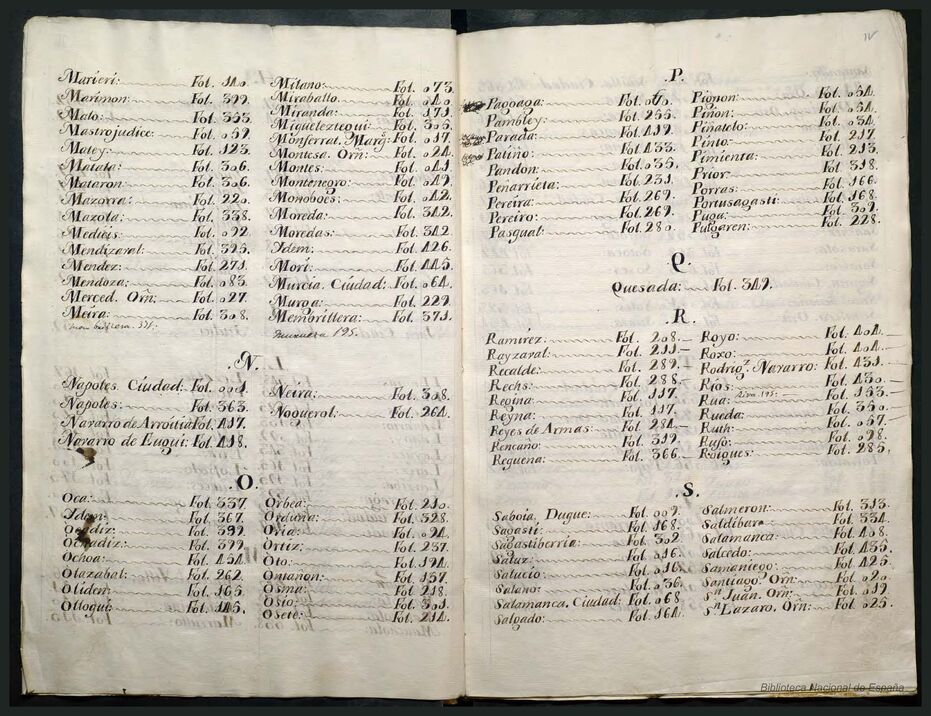 Marieri: Fol. 310.
Marimon: Fol. 399.
Malo: Fol. 353.
Mastrojudice: Fol. 059.
Matey: Fol. 123.
Matala: Fol. 306.
Mataron: Fol. 306.
Mazorra: Fol. 220.
Mazola: Fol. 338.
Medicis: Fol. 092.
Mendizaval: Fol. 325.
Mendez: Fol. 271.
Mendoza: Fol. 083.
Merced. Orn: Fol. 027.
Meira: Fol. 308.
Milano: Fol. 073.
Miraballo.
Miranda: Fol. 171.
Migueleztegui: Fol. 305.
Monserrat. Marq: Fol. 017.
Montesa. Orn: Fol. 024.
Montes: Fol. 041.
Montenegro: Fol. 049.
Monoboes: Fol. 042.
Moreda: Fol. 342.
Moredas: Fol. 342.
Idem: Fol. 426.
Mori: Fol. 445.
Murcia. Ciudad: Fol. 064.
Murga: Fol. 229.
Membrillera: Fol. 371.
195.
.N.
Napoles. Ciudad: Fol. 001.
Napoles: Fol. 363.
Navarro de Arroitia: Fol. 417.
Navarro de Eugui: Fol. 418.
Neira: Fol. 308.
Noguerol: Fol. 264.
.O.
Oca: Fol. 337.
Idem: Fol. 367.
Fol. 399.
Ochadiz: Fol. 399.
Ochoa: Fol. 454.
Olazabal: Fol. 262.
Oliden: Fol. 165.
Olloqui: Fol. 146.
Orbea: Fol. 210.
Orduña: Fol. 328.
Oria: Fol. 094.
Ortiz: Fol. 237.
Oto: Fol. 194.
Ontañon: Fol. 157.
Osma: Fol. 218.
Osio: Fol. 301.
Osete: Fol. 214.
IV
.P.
Pagoaga: Fol.
Pambley: Fol. 255.
Parada: Fol. 419.
Patiño: Fol. 433.
Pandon: Fol. 035.
Peñarrieta: Fol. 231.
Pereira: Fol. 269.
Pereiro: Fol. 269.
Pasqual: Fol. 280.
Pignon: Fol. 054.
Piñon: Fol. 054.
Piñatelo: Fol. 034.
Pinto: Fol. 217.
Pimienta: Fol. 213.
Prior: Fol. 318.
Porras: Fol. 166.
Portusagasti: Fol. 168.
Puga: Fol. 309.
Pulgaren: Fol. 228.
Q.
Quesada: Fol. 349.
.R.
Ramirez: Fol. 208.
Rayzaval: Fol. 211.
Recalde: Fol. 289.
Rechs: Fol. 288.
Regina: Fol. 117.
Reyna: Fol. 117.
Reyes de Armas: Fol. 284.
Rencaño: Fol. 319.
Reguena: Fol. 366.
Royo: Fol. 404.
Roxo: Fol. 404.
Rodrig.z Navarro: Fol. 431.
Rios: Fol. 430.
Rua: Riva 195. Fol. 153.
Rueda: Fol. 350.
Ruth: Fol. 057.
Rufo: Fol. 098.
Roigues: Fol. 285.
.S.
Saboia. Duque: Fol. 009.
Sagasti: Fol. 168.
Sagastiberria: Fol. 302.
Saluz: Fol. 016.
Salucio: Fol. 016.
Salano: Fol. 036.
Salamanca. Ciudad: Fol. 068.
Salgado: Fol. 164.
Salmeron: Fol. 313.
Saldibara Fol. 334.
Salamanca: Fol. 408.
Salcedo: Fol. 435.
Samaniego: Fol. 425.
Santiago. Orn: Fol. 020.
S.n Juan. Orn: Fol. 019.
S.n Lazaro. Orn: Fol. 025.
Biblioteca Nacional de España